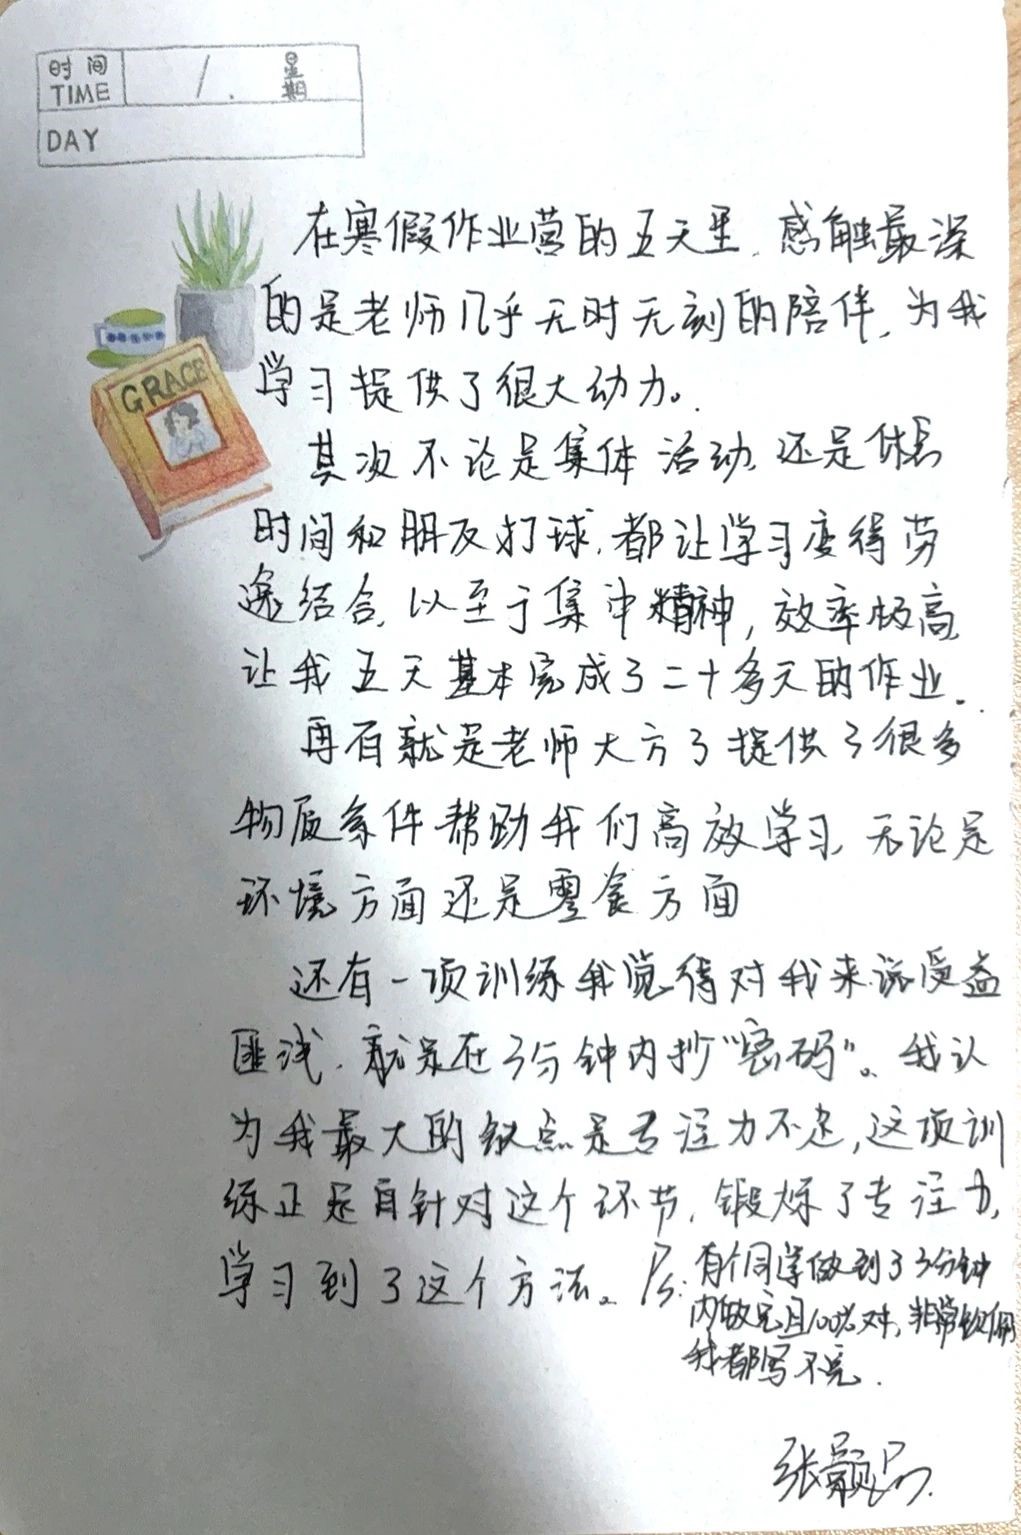 时间 / . 星期
TIME
DAY
GRACE
在寒假作业营的五天里，感触最深
的是老师几乎无时无刻的陪伴，为我
学习提供了很大动力。
其次不论是集体活动，还是休息
时间和朋友打球，都让学习变得劳
逸结合，以至于集中精神，效率极高，
让我五天基本完成了二十多天的作业．
再有就是老师大方了提供了很多
物质条件帮助我们高效学习，无论是
环境方面还是零食方面
还有一项训练我觉得对我来说受益
匪浅，就是在3分钟内抄“密码”。我认
为我最大的缺点是专注力不足，这项训
练正是自针对这个环节，锻炼了专注力，
学习到了这个方法。Ps:有个同学做到了3分钟
内做完且100%对，非常钦佩
我都写不完．
张颢